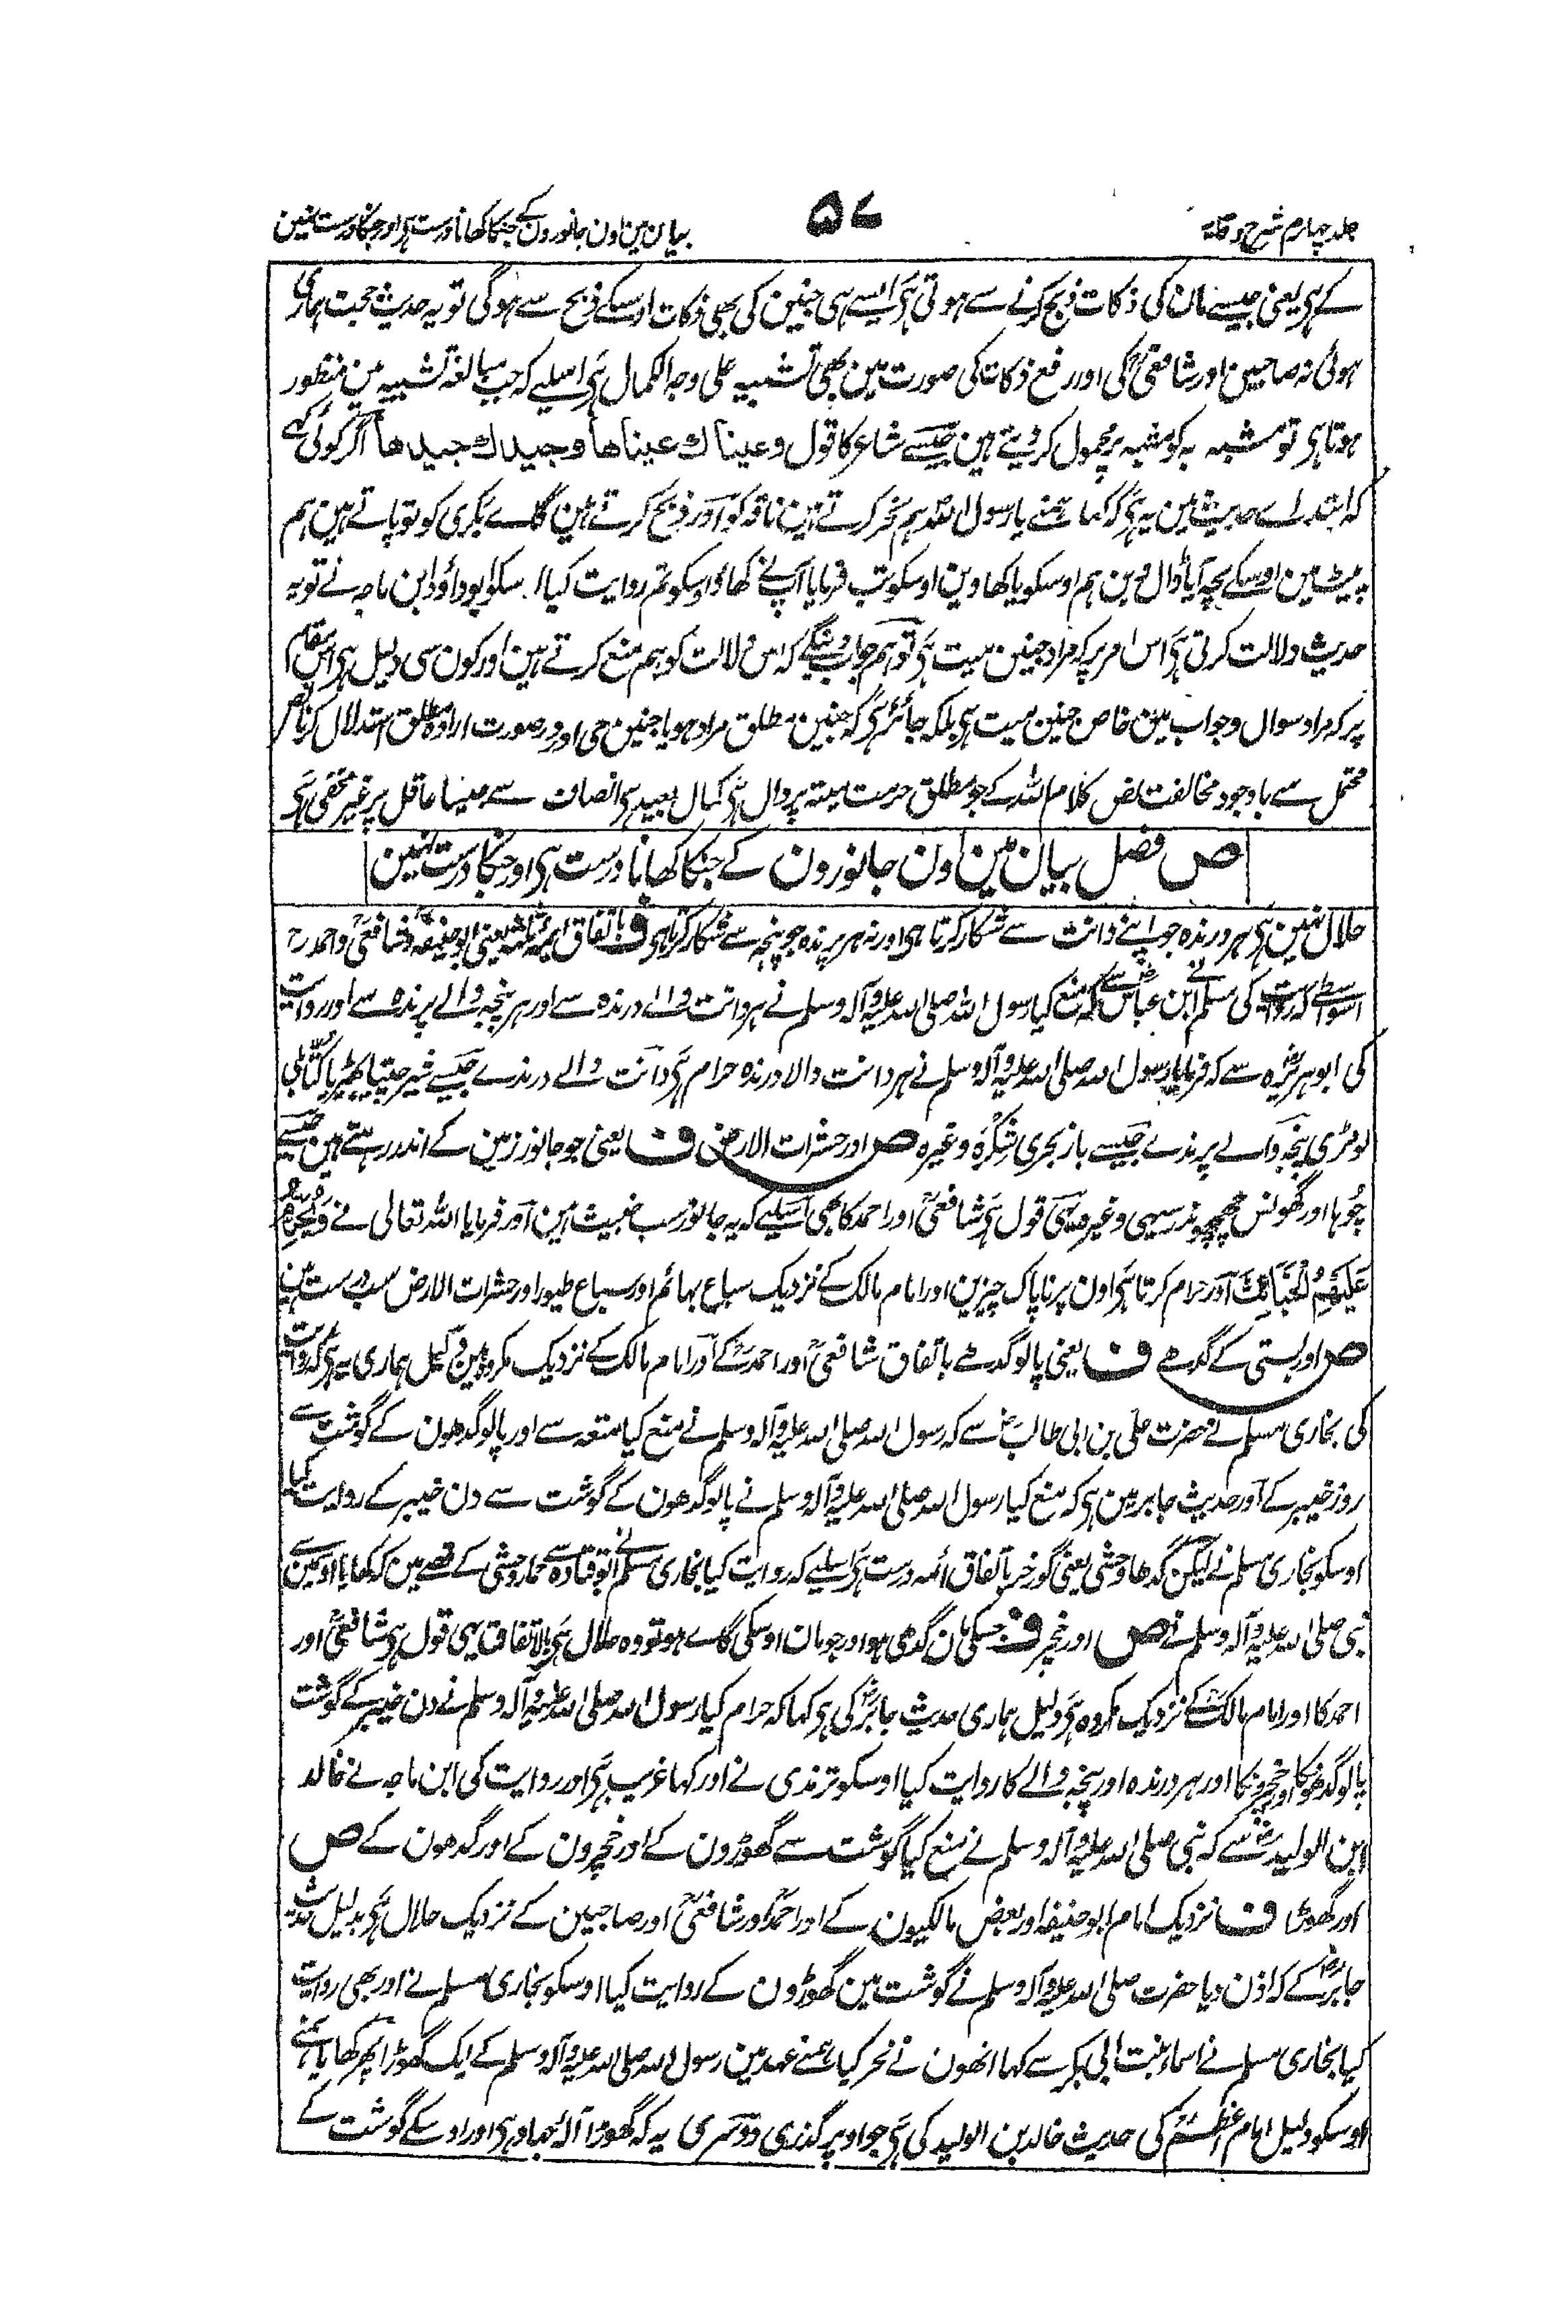 جلد چہارم شرح وقایہ
۵۷
بیان مین اون جانورون کے جنکا کھانا درست ہی اور جنکا درست نہین
کے ہی یعنی جیسے مان کی ذکات ذبح کرنے سے ہوتی ہی ایسے ہی جنین کی بھی ذکات اوسکے ذبح سے ہوگی تو یہ حدیث حجت ہماری
ہوئی نہ صاحبین اور شافعیؒ کی اور رفع ذکات کی صورت مین بھی تشبیہ علی وجہ الکمال ہی اسلیے کہ جب مبالغہ تشبیہ مین منظور
ہوتا ہی تو مشبہ بہ کو مشبہ پر محمول کر دیتے ہین جیسے شاعر کا قول وعیناك عیناها وجیدك جیدها اگر کوئی کہے
کہ ابتداے حدیث مین یہ ہی کہ کہا ہمنے یا رسول اللہ ہم نحر کرتے ہین ناقہ کو اور ذبح کرتے ہین گاے بکری کو تو پاتے ہین ہم
پیٹ مین اوسکے بچہ آیا ڈال دین ہم اوسکو یا کھاوین اوسکو تب فرمایا آپ نے کھاؤ اوسکو تم روایت کیا اسکو ابوداؤد ابن ماجہ نے تو یہ
حدیث دلالت کرتی ہی اس امر پر کہ مراد جنین میت ہی تو ہم جواب دینگے کہ اس دلالت کو ہم منع کرتے ہین اور کون سی دلیل ہی اس مقام
پر کہ مراد سوال وجواب مین خاص جنین میت ہی بلکہ جائز ہی کہ جنین مطلق مراد ہو یا جنین حی اور در صورت ارادہ مطلق استدلال کرنا نص
محتمل سے باوجود مخالفت نص کلام اللہ کے جو مطلق حرمت میتہ پر دال ہی کمال بعید ہی انصاف سے عاقل پر غیر مخفی ہی
ص فصل بیان مین اون جانورون کے جنکا کھانا درست ہی اور جنکا درست نہین
حلال نہین ہی ہر درندہ جو اپنے دانت سے شکار کرتا ہی اور نہ ہر پرندہ جو پنجہ سے شکار کرتا ہی ف باتفاق ایمہ ثلثہ یعنی ابوحنیفہؒ وشافعیؒ واحمدؒ
اسواسطے کہ روایت کی مسلم نے ابن عباسؓ سے کہ منع کیا رسول اللہ صلی اللہ علیہ وآلہ وسلم نے ہر دانت والے درندہ سے اور ہر پنجہ والے پرندہ سے اور روایت
کی ابوہریرہؓ سے کہ فرمایا رسول اللہ صلی اللہ علیہ وآلہ وسلم نے ہر دانت والا درندہ حرام ہی دانت والے درندے جیسے شیر چیتا بھیڑیا کتا بلی
لومڑی پنجہ والے پرندے جیسے باز بحری شکرہ وغیرہ ص اور حشرات الارض ف یعنی جو جانور زمین کے اندر رہتے ہین جیسے
چوہا اور گھونس چھچھوندر سیہی وغیرہ یہی قول ہی شافعیؒ اور احمد کا بھی اسلیے کہ یہ جانور سب خبیث ہین اور فرمایا اللہ تعالی نے وَيُحَرِّمُ
عَلَيْهِمُ الْخَبَائِثَ اور حرام کرتا ہی اون پر ناپاک چیزین اور امام مالک کے نزدیک سباع بہائم اور سباع طیور اور حشرات الارض سب درست ہین
ص اور بستی کے گدھے ف یعنی پالو گدھے باتفاق شافعیؒ اور احمدؒ کے اور امام مالک کے نزدیک مکروہ ہین دلیل ہماری یہ ہی کہ روایت
کی بخاری مسلم نے حضرت علی بن ابی طالبؓ سے کہ رسول اللہ صلی اللہ علیہ وآلہ وسلم نے منع کیا متعہ سے اور پالو گدھون کے گوشت سے
روز خیبر کے اور حدیث جابر مین ہی کہ منع کیا رسول اللہ صلی اللہ علیہ وآلہ وسلم نے پالو گدھون کے گوشت سے دن خیبر کے روایت کیا
اوسکو بخاری مسلم نے لیکن گدھا وحشی یعنی گورخر باتفاق ائمہ درست ہی اسلیے کہ روایت کیا بخاری مسلم نے ابوقتادہ سے حمار وحشی کے قصے مین کہ کھایا اوسمین سے
نبی صلی اللہ علیہ وآلہ وسلم نے ص اور خچر ف جسکی مان گدھی ہو اور جو مان اوسکی گاے ہو تو وہ حلال ہی بالاتفاق یہی قول ہی شافعیؒ اور
احمد کا اور امام مالکؒ کے نزدیک مکروہ ہی دلیل ہماری حدیث جابرؓ کی ہی کہا کہ حرام کیا رسول اللہ صلی اللہ علیہ وآلہ وسلم نے دن خیبر کے گوشت
پالو گدھونکا اور خچرونکا اور ہر درندہ اور پنجہ والے کا روایت کیا اوسکو ترمذی نے اور کہا غریب ہی اور روایت کی ابن ماجہ نے خالد
ابن الولیدؓ سے کہ نبی صلی اللہ علیہ وآلہ وسلم نے منع کیا گوشت سے گھوڑون کے اور خچرون کے اور گدھون کے ص
اور گھوڑا ف نزدیک امام ابوحنیفہ اور بعض مالکیون کے اور احمدؒ اور شافعیؒ اور صاحبین کے نزدیک حلال ہی بدلیل حدیث
جابرؓ کے کہ اذن دیا حضرت صلی اللہ علیہ وآلہ وسلم نے گوشت مین گھوڑون کے روایت کیا اوسکو بخاری مسلم نے اور بھی روایت
کیا بخاری مسلم نے اسماء بنت ابی بکر سے کہا انھون نے نحر کیا ہمنے عہد مین رسول اللہ صلی اللہ علیہ وآلہ وسلم کے ایک گھوڑا پھر کھایا ہمنے
اوسکو دلیل امام اعظمؒ کی حدیث خالد بن الولید کی ہی جو اوپر گذری دوسری یہ کہ گھوڑا آلہ جہاد ہی اور اوسکے گوشت کے